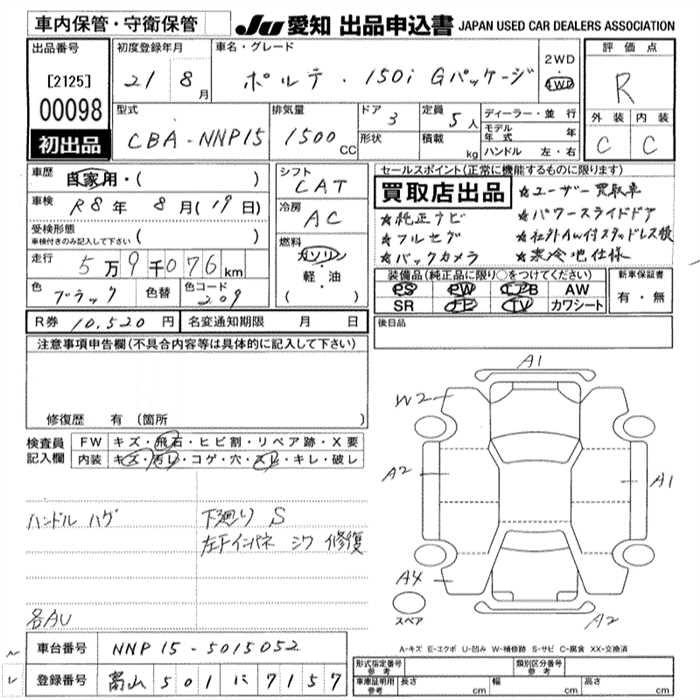 車内保管・守衛保管
JU 愛知 出品申込書 JAPAN USED CAR DEALERS ASSOCIATION
出品番号
[2125]
00098
初出品
初度登録年月
21 8月
車名・グレード
ポルテ・150i Gパッケージ
2WD
4WD
評価点
R
外装 内装
C C
型式
CBA-NNP15
排気量
1500cc
ドア 3
形状
定員 5人
積載 kg
ディーラー・並行
モデル年式 年
ハンドル 左・右
車歴 自家用・( )
車検 R8年 8月(19日)
受検形態
車検付きのみ記入して下さい ( )
走行 5万9千076km
色 ブラック 色替 色コード 209
シフト
CAT
冷房
AC
燃料
ガソリン
軽・油
( )
セールスポイント(正常に機能するものに限ります)
買取店出品
★ユーザー買取車
★純正ナビ ★パワースライドドア
★フルセグ ★社外AW付スタッドレス積
★バックカメラ ★寒冷地仕様
装備品(純正品に限り○をつけてください)
PS PW エアB AW
SR ナビ TV カワシート
新車保証書
有・無
R券 10,520円 名変通知期限 月 日
後日品
注意事項申告欄(不具合内容等は具体的に記入して下さい)
修復歴 有(箇所 )
検査員記入欄
FW キズ・飛石・ヒビ割・リペア跡・X要
内装 キズ・汚レ・コゲ・穴・スレ・キレ・破レ
ハンドル ハゲ
下廻り S
左下インパネ シワ 修復
各AU
A1
W2
A2
A1
A4
A2
スペア
A-キズ E-エクボ U-凹み W-補修跡 S-サビ C-腐食 XX-交換済
車台番号 NNP15-5015052
登録番号 富山 501 に 7157
形式指定番号 参考
類別区分番号 参考
車庫証明用 参考 長さ cm 幅 cm 高さ cm